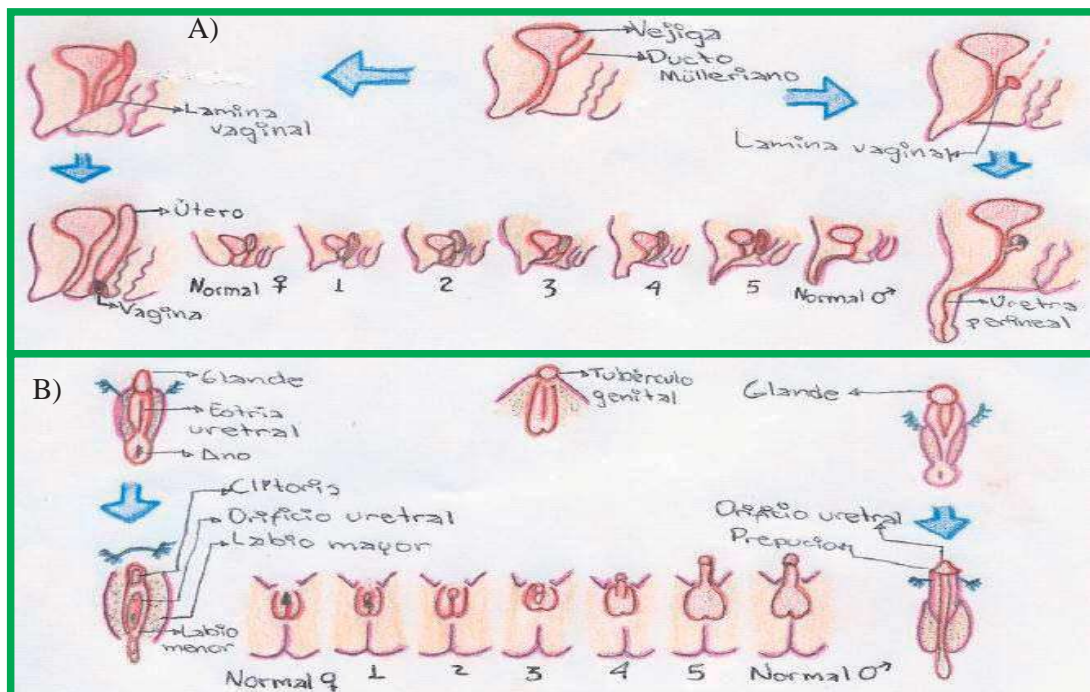 A)
Vejiga
Ducto
Mülleriano
Lamina
vaginal
Lamina vaginal
Útero
Vagina
Normal ♀ 1 2 3 4 5 Normal ♂
Uretra
perineal
B)
Glande
Estria
uretral
Ano
Tubérculo
genital
Glande
Clítoris
Orificio uretral
Labio mayor
Labio
menor
Orificio uretral
Prepucio
Normal ♀ 1 2 3 4 5 Normal ♂